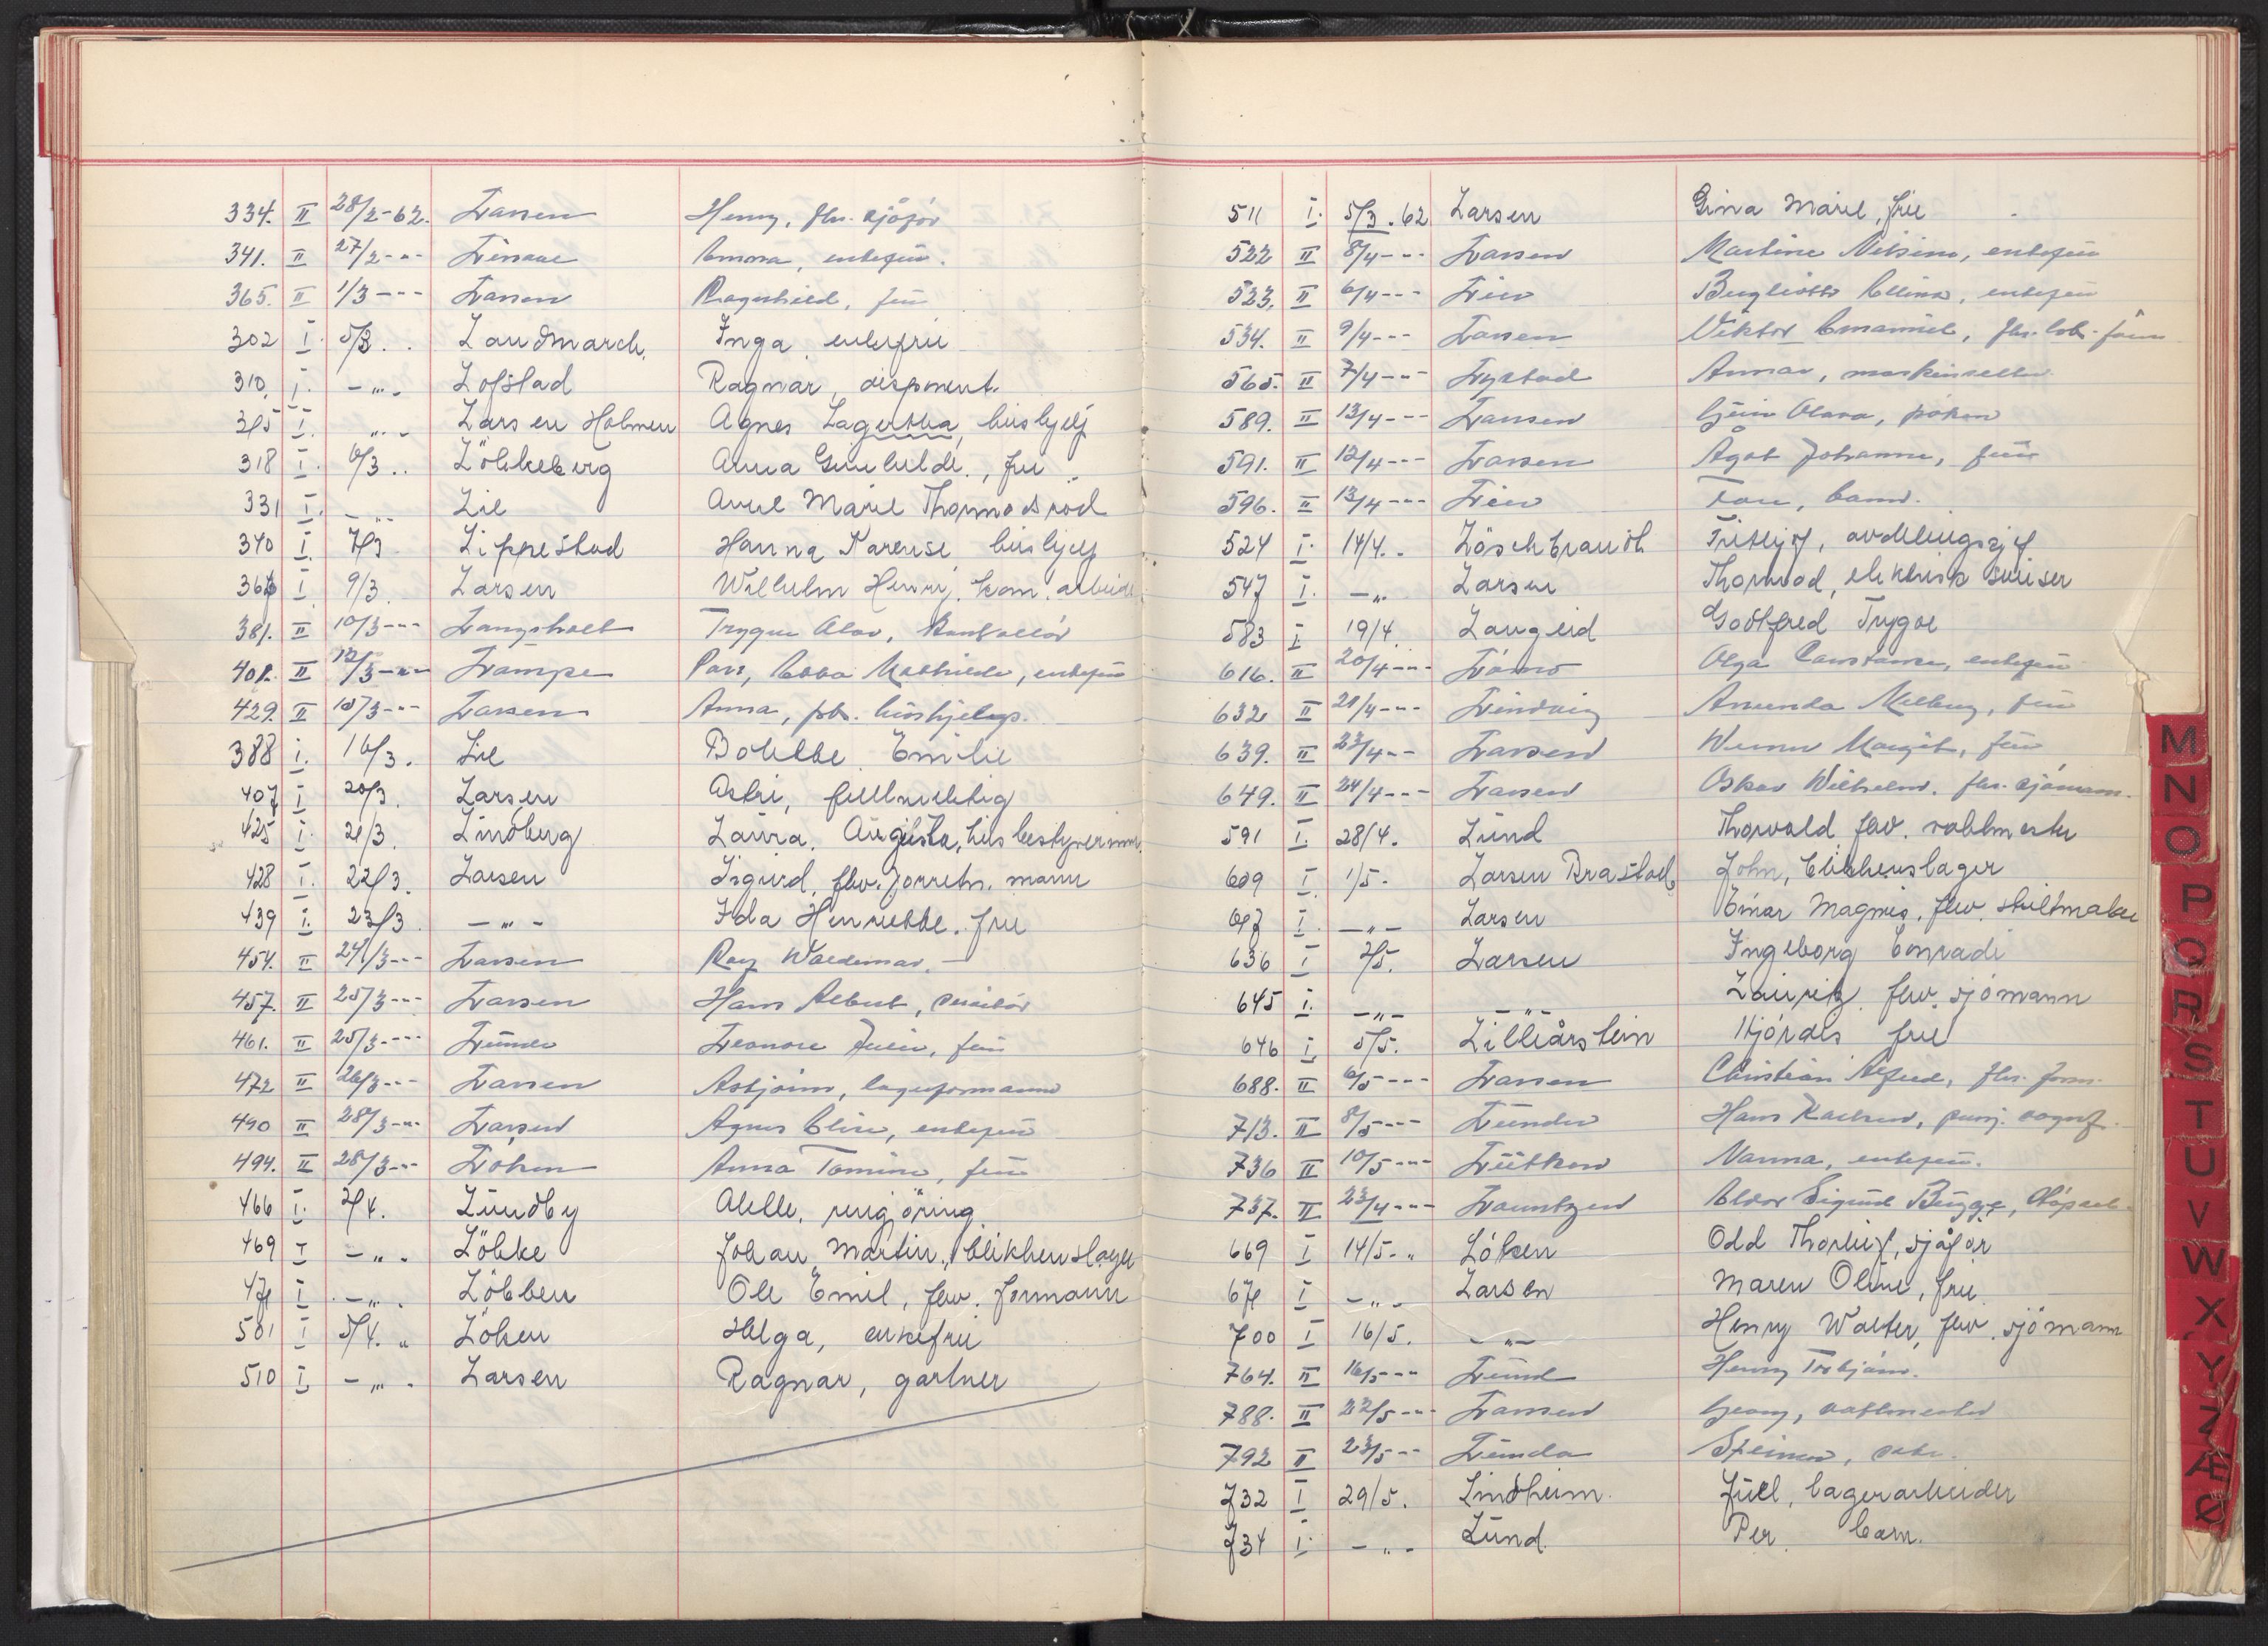 334. II 28/2-62. Larsen Henry, fhv. sjåfør
341. II 27/2 -"- Emma, enkefru.
365. II 1/3 -"- Larsen Ragnhild, fru
302 I. 5/3 . . Landmarck, Inga enkefru
310, I. -"- Lofstad Ragnar, disponent.
315 I. "- Larsen Holmen Agnes Lagertha, hushjelp
318 I. 6/3 . . Lökkeberg Anna Gunhilde., fru
331 I. -"- Lie Anne Marie Thormodsrød
340 I. 7/3 Lippestad Hanna Karense, hushjelp
367 I 9/3 Larsen Wilhelm Henry. kom. arbeider
381. II 10/3 -"- Langsholt Trygve Olav,
401. II 12/3 -"- Lampe Ebba Mathilde, enkefru
429. II 15/3 -"- Larsen Anna, hushjelp.
388 I. 16/3. Lie Bolette Emilie
407 I 20/3. Larsen Astri, fullmektig
425 I. 21/3. Lindberg Laura. Augusta, husbestyrerinne.
428 I. 22/3. Larsen Sigurd. fhv. forretn. mann
439 I. 23/3. -"- Ida Henriette. fru
454. II 24/3 -"- Larsen Roy Waldemar. -
457. II 25/3 -"- Larsen Hans Albert,
461. II 25/3 -"- Lunde Leonore Julie, fru
472 II 26/3 -"- Larsen Asbjørn, lagerformann
490 II 28/3 -"- Larsen Agnes Elise, enkefru
494. II 28/3 -"- Løken Anna Tomine, fru
466 I. 2/4. Lundby Alelle. rengjöring.
469 I -"- Lökke Johan Martin., blikkenslager
471 I -"- Löbben Ole Emil, fhv. formann
501 I 5/4. " Löken Helga, enkefru
510 I. -"- Larsen Ragnar, gartner
511 I. 5/3. 62 Larsen Gina Marie, fru
522 II 8/4 -"- Larsen Martine Nilsine, enkefru
523. II 6/4 -"- Lien Bergliotte Elina, enkefru
534. II 9/4 -"- Larsen Viktor Emanuel, fhv.
565. II 7/4 -"- Lystad Annar,
589. II 13/4 -"- Larsen Olava, frøken
591. II 12/4 -"- Larsen Ågot Johanne, fru
596. II 13/4 -"- Lien Tore, barn.
524 I. 14/4. . Löschbrandt Fritjof, avdelingssjef
547 I. -"- Larsen Thormod, elektrisk sveiser
583 I. 19/4. Langeid Godtfred Trygve
616. II 20/4 -"- Olga Constance, enkefru
632 II 21/4 -"- Lindvig Amunda Melberg, fru
639. II 23/4 -"- Larsen Werna Margit, fru
649. II 24/4 -"- Larsen Oskar Wilhelm. fhv. sjømann.
591 I. 28/4. Lund Thorvald fhv. vaktmester
609 I. 1/5. Larsen Brastad John, blikkenslager
617 I. -"- Larsen Einar Magnus, fhv. skiltmaker
636 I 2/5. Larsen Ingeborg Conradi
645 I. -"- -"- Lauritz fhv. sjömann
646 I. 5/5. Lilleårstein Hjördis fru
688. II 6/5 -"- Larsen Christian Alfred, fhv. form.
713. II 8/5 -"- Lunder Hans Karlsen, pensj. vognf.
736 II 10/5 -"- Lütken Nanna, enkefru.
737. II 23/4 -"- Lauritzen Eldor Sigurd Bugge,
669 I 14/5. " Löken Odd Thorleif, sjåfør
671 I -"- Larsen Maren Oline, fru.
700 I 16/5. -"- Henry Walter, fhv. sjömann
764. II 16/5 -"- Lund Henry Torbjørn.
788. II 22/5 -"- Larsen Georg, vaktmester
792 II 23/5 -"- Lunde
732 I 29/5. Lindheim. Juell, lagerarbeider
734 I. -"- Lund. Per. barn.
M
N
O
P
Q
R
S
T
U
V
W
X
Y
Z
Æ
Ø